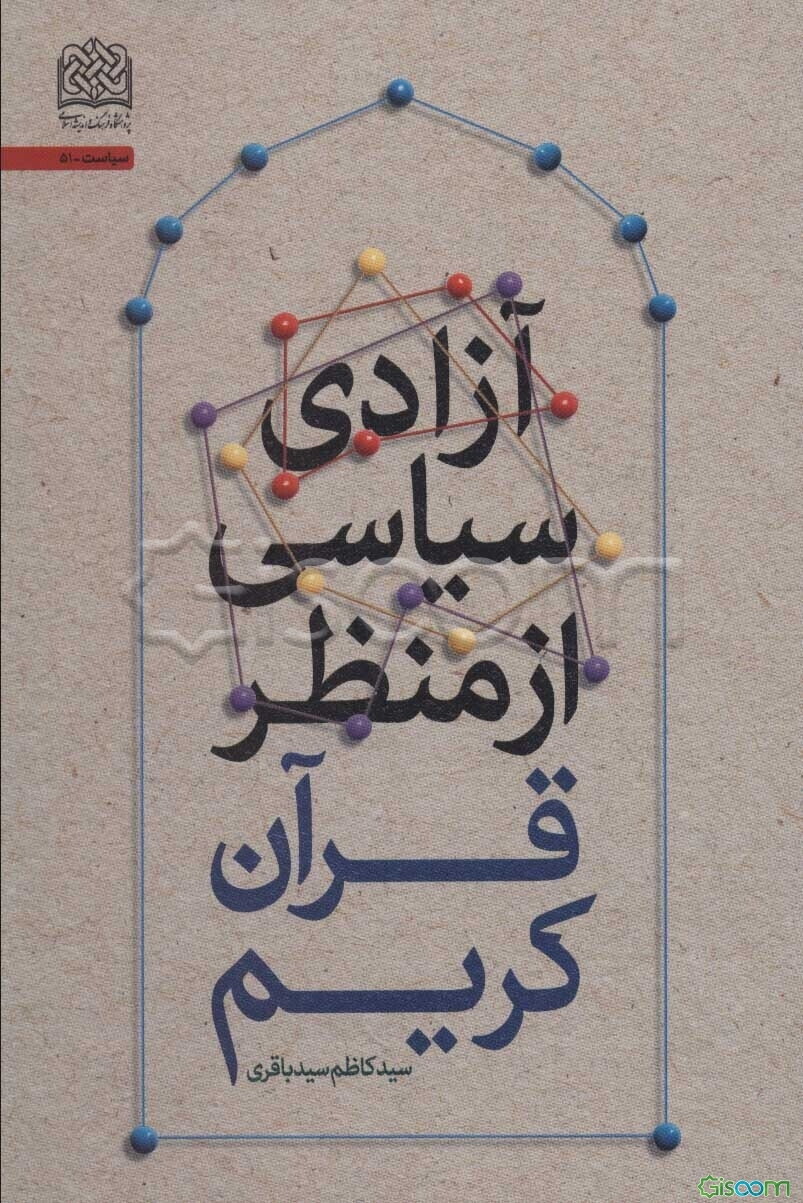 پژوهشگاه فرهنگ و اندیشه اسلامی
سیاست-۵۱
آزادی
سیاسی
از منظر
قرآن
کریم
سید کاظم سید باقری
Gisoom
Gisoom